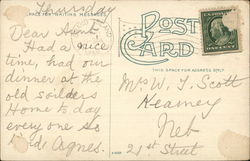 Thursday
SPACE FOR WRITING MESSAGES
POST CARD
THIS SPACE FOR ADDRESS ONLY
Dear Aunt.
Had a nice
time, had our
dinner at the
old soilders
Home to day
every one so
Agnes.
Mrs W. T. Scott
Kearney
Neb
21st Street
ONE CENT